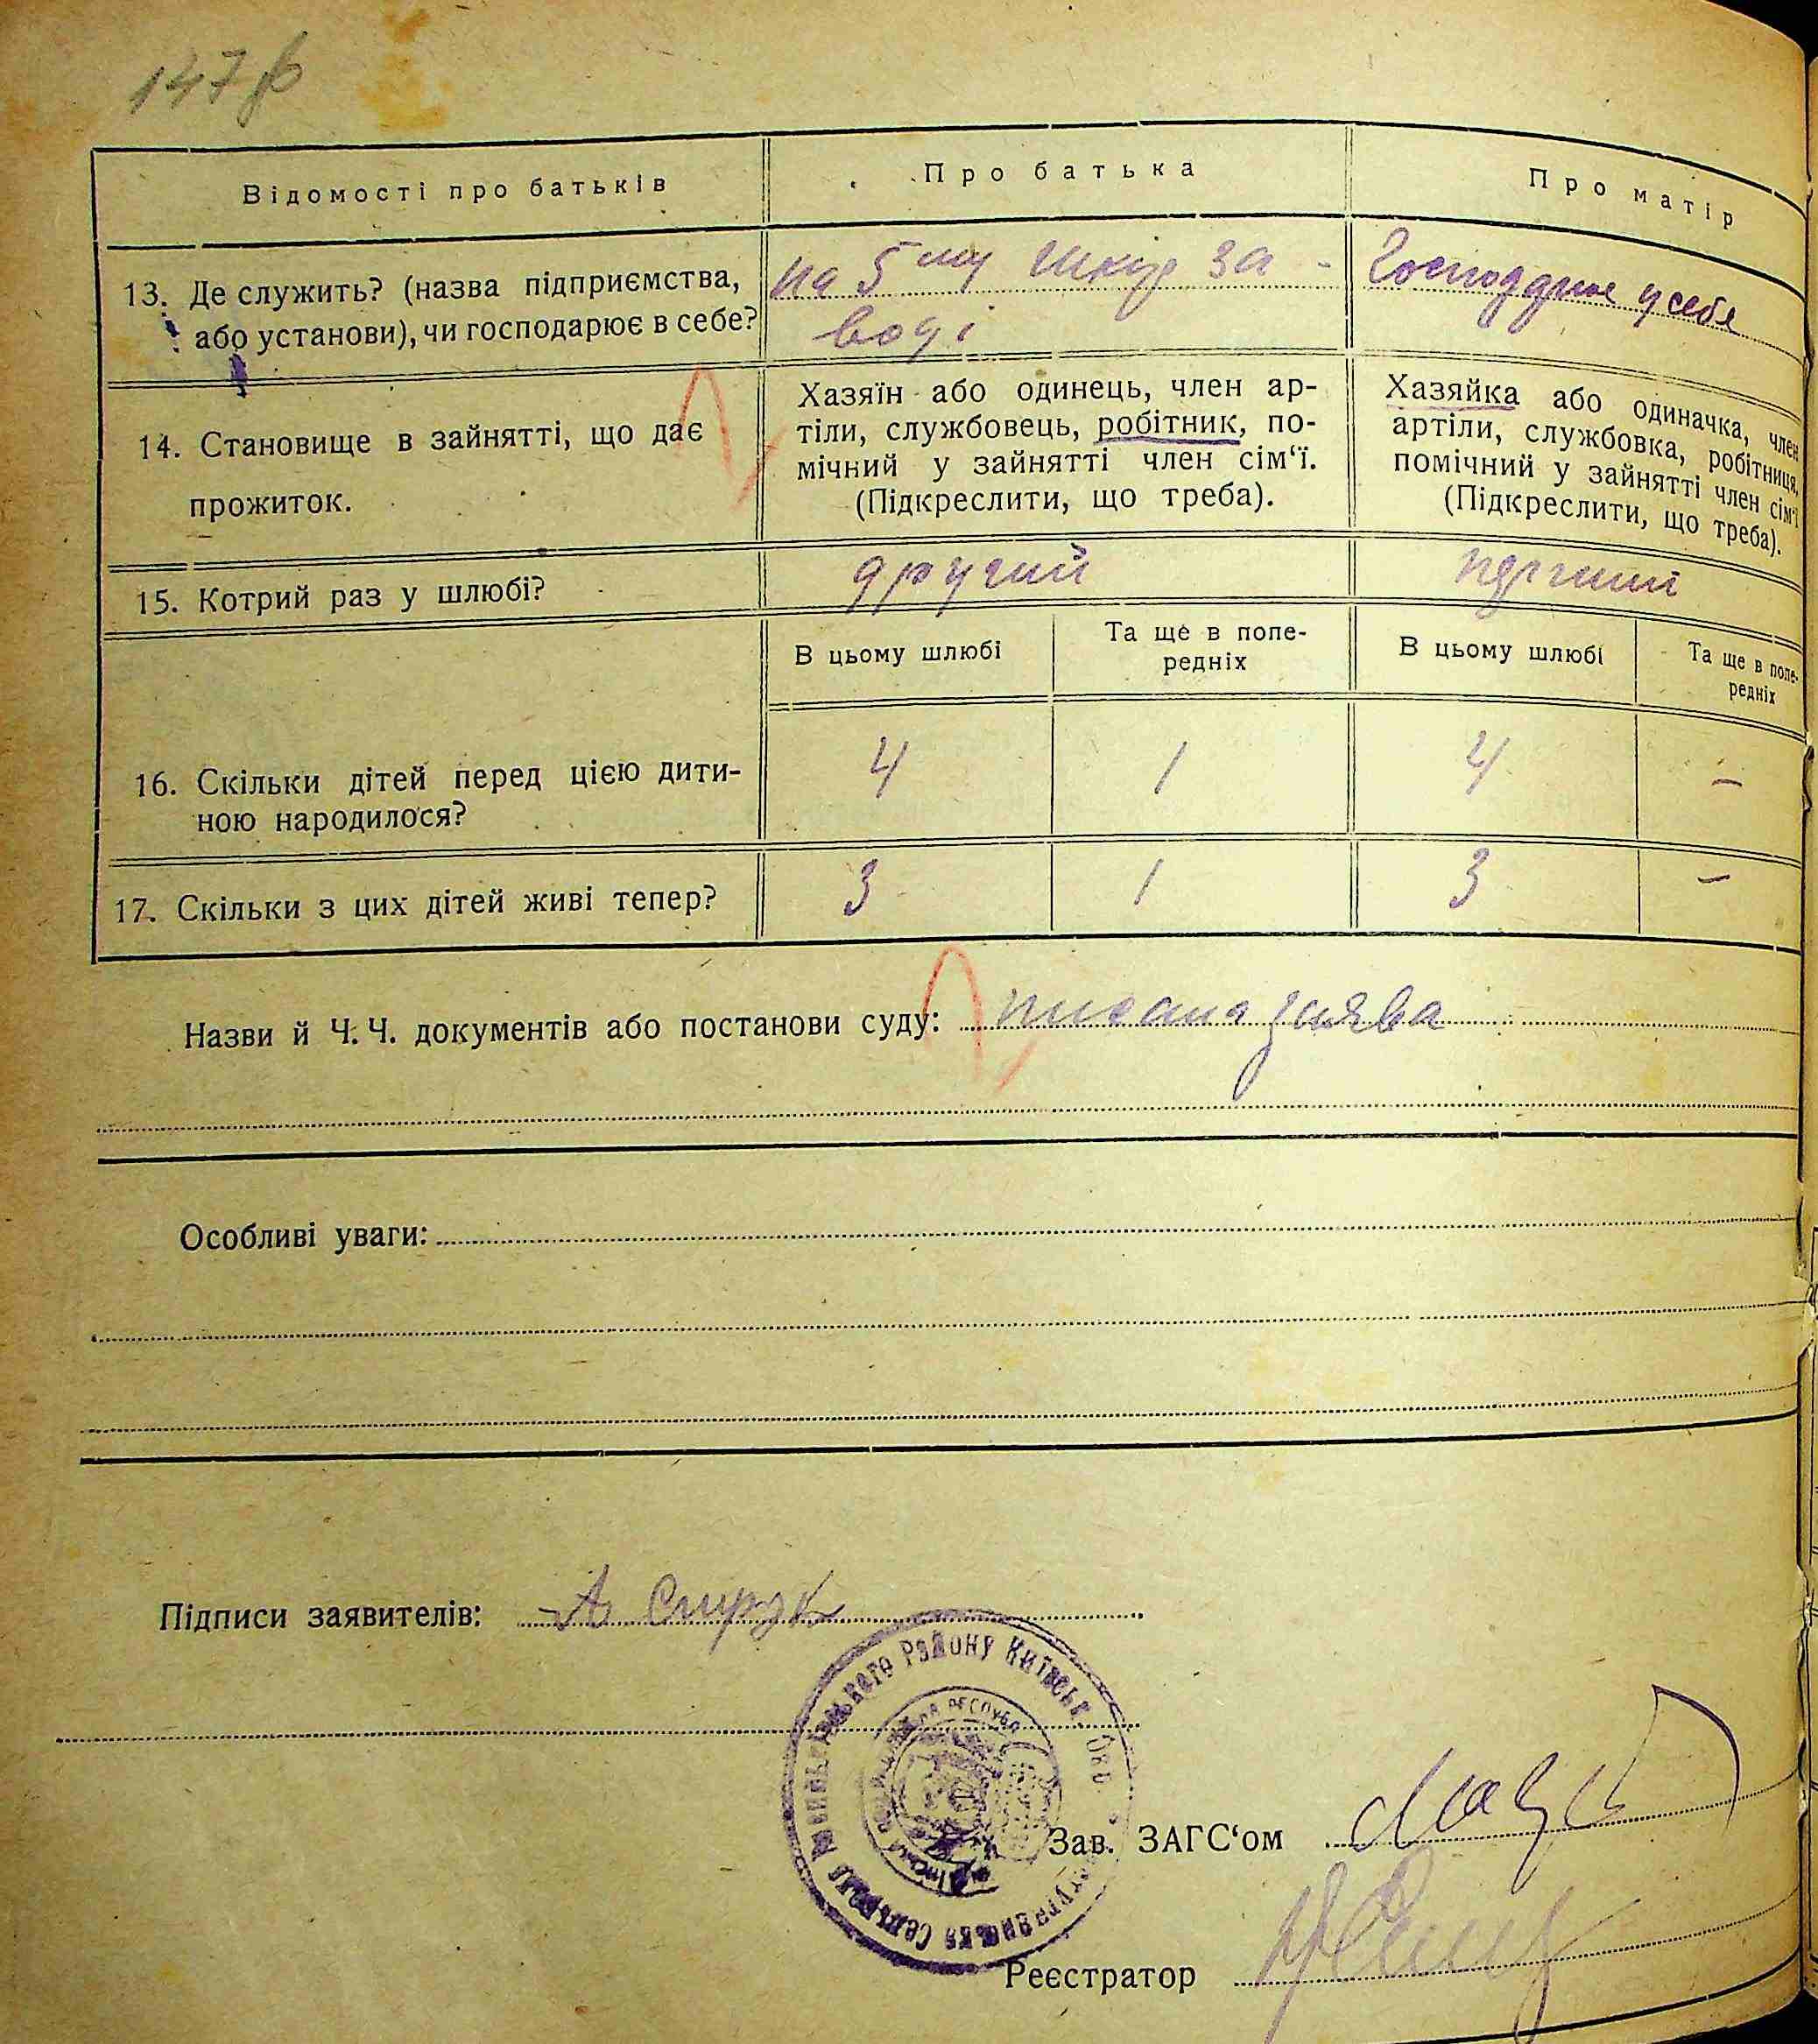 147
Відомості про батьків
Про батька
Про матір
13. Де служить? (назва підприємства,
або установи), чи господарює в себе?
на 5му Шкір за-
воді
Господарює у себе
14. Становище в зайнятті, що дає
прожиток.
Хазяїн або одинець, член ар-
тіли, службовець, робітник, по-
мічний у зайнятті член сім‘ї.
(Підкреслити, що треба).
Хазяйка або одиначка, член
артіли, службовка, робітниця,
помічний у зайнятті член сім‘ї
(Підкреслити, що треба).
15. Котрий раз у шлюбі?
другий
перший
В цьому шлюбі
Та ще в попе-
редніх
В цьому шлюбі
Та ще в попе-
редніх
16. Скільки дітей перед цією дити-
ною народилося?
4
1
4
–
17. Скільки з цих дітей живі тепер?
3
1
3
–
Назви й Ч. Ч. документів або постанови суду: писана заява
Особливі уваги:
Підписи заявителів: А
Району Київськ. Окр.
Сельрада
Зав. ЗАГС‘ом
Реєстратор